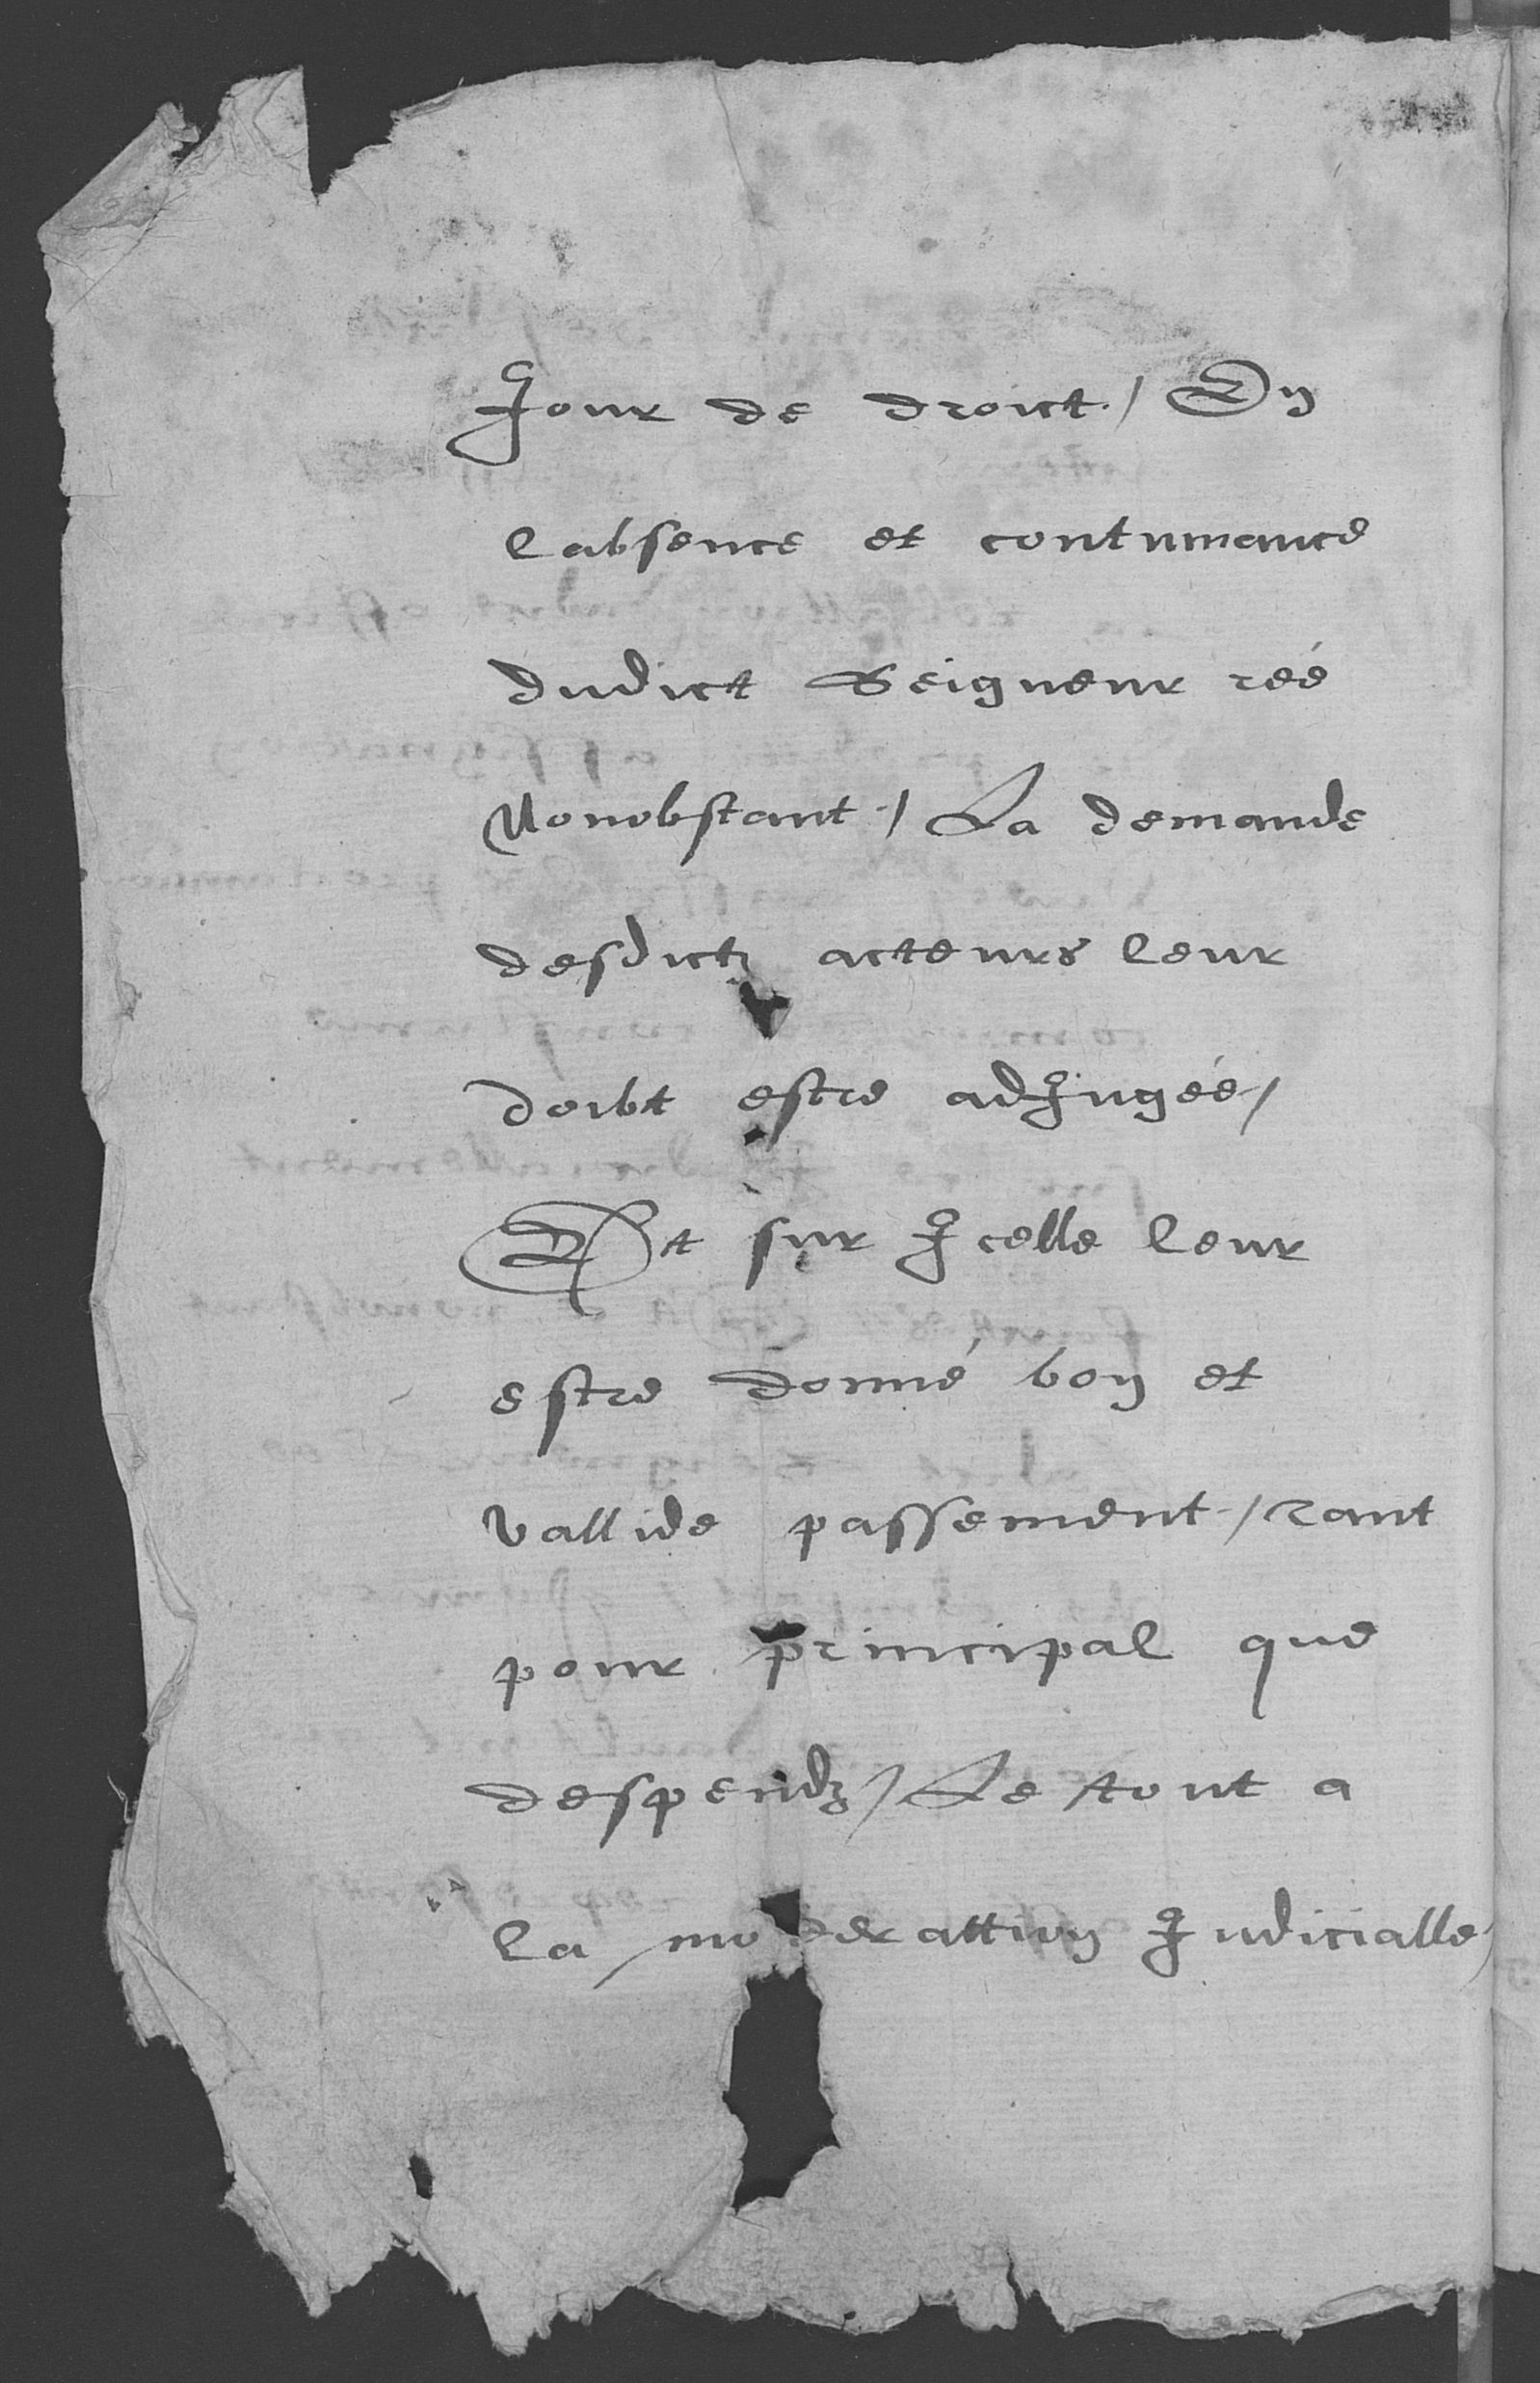 Jour de droict / En
labsence et contumance
dudict Seigneur réé
Nonobstant / La demande
desdictz acteurs leur
doibt estre adJugée /
Et sur Jcelle leur
estre donné bon et
vallide passement / tant
pour principal que
despendz / Le tout a
la moderattion Judicialle /